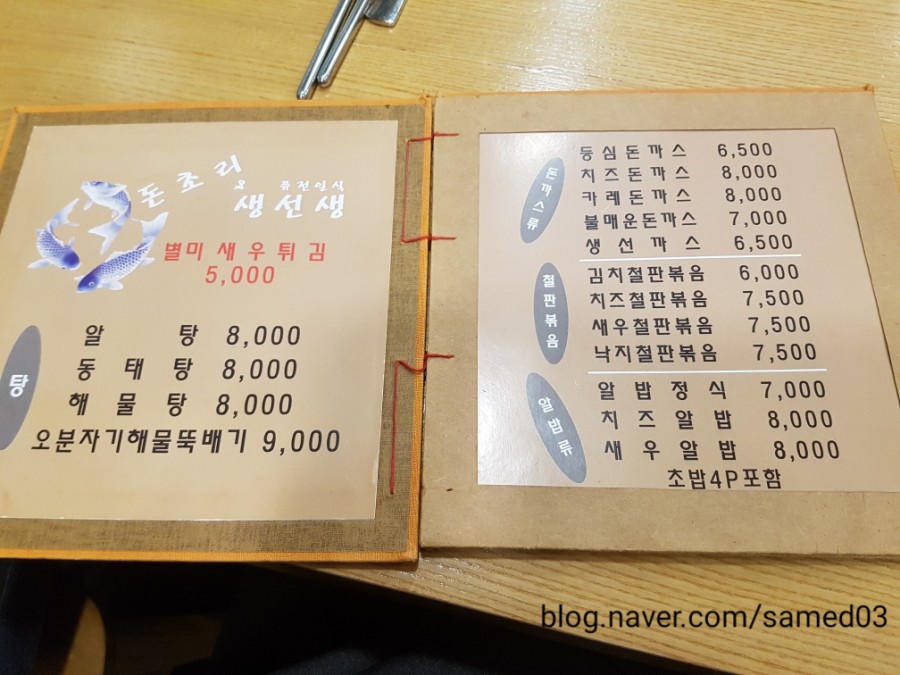 돈초리
& 퓨전일식
생선생
별미새우튀김
5,000
탕
알 탕 8,000
동태탕 8,000
해물탕 8,000
오분자기해물뚝배기 9,000
돈까스류
등심돈까스 6,500
치즈돈까스 8,000
카레돈까스 8,000
불매운돈까스 7,000
생선까스 6,500
철판볶음
김치철판볶음 6,000
치즈철판볶음 7,500
새우철판볶음 7,500
낙지철판볶음 7,500
알밥류
알밥정식 7,000
치즈알밥 8,000
새우알밥 8,000
초밥4P포함
blog.naver.com/samed03